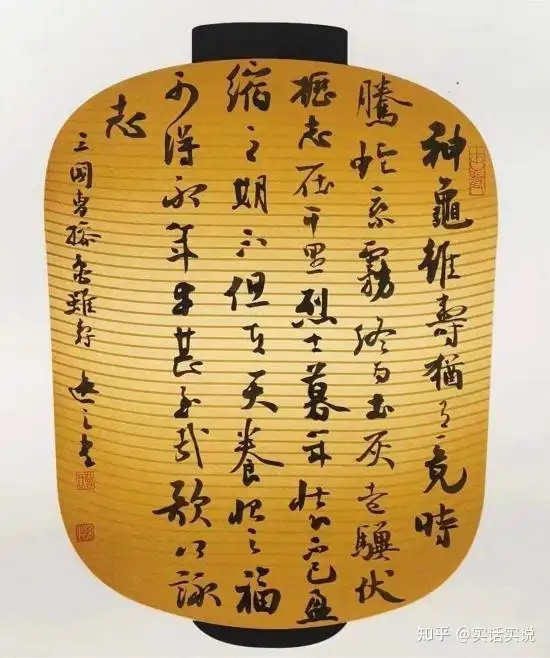 神龜雖壽猶有竟時
騰蛇乘霧終為土灰老驥伏
櫪志在千里烈士暮年壯心不已盈
縮之期不但在天養怡之福
可得永年幸甚至哉歌以詠
志
三國曹操龜雖壽 之書
知乎 @实话实说